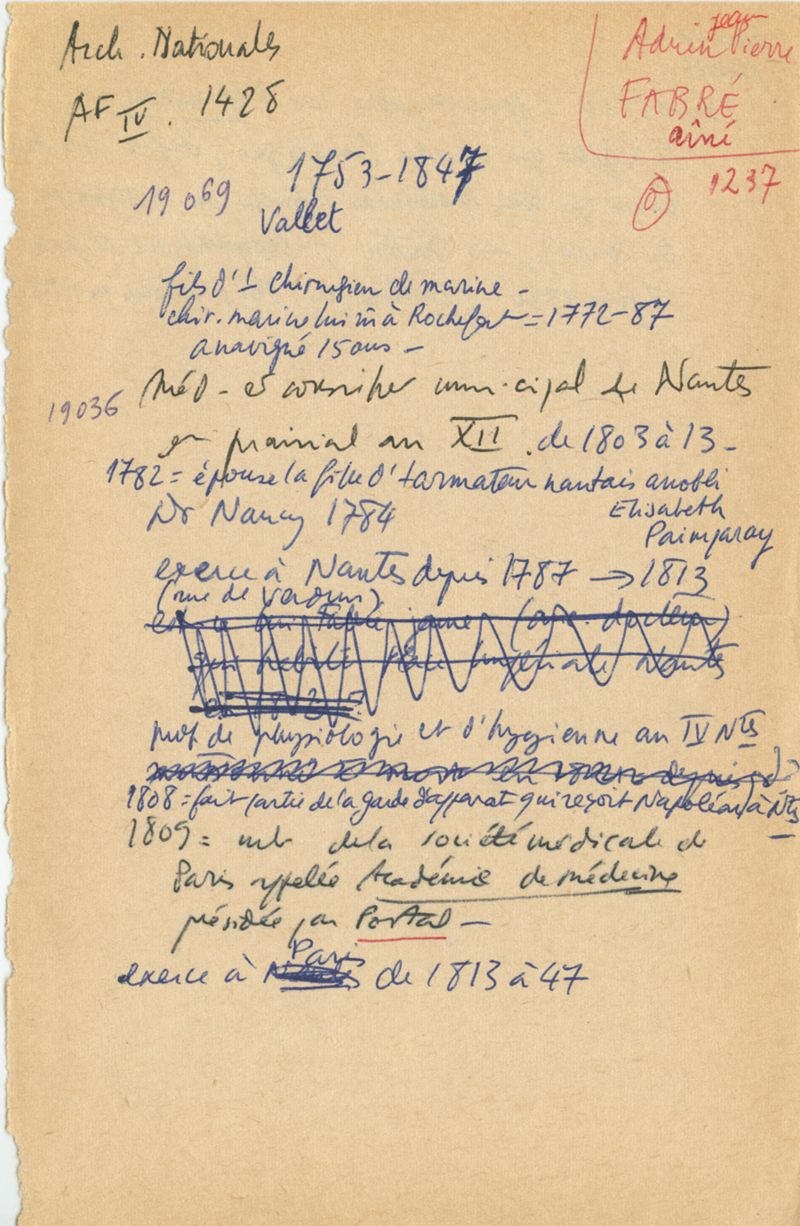 Arch. Nationales
AF IV. 1428
jean
Adrien Pierre
FABRÉ
aîné
1237
19069
1753-1847
Vallet
fils d'1 chirurgien de marine -
chir. marine lui m̂ à Rochefort = 1772-87
a navigué 15 ans -
19036
Méd - et conseiller municipal de Nantes
en prairial an XII. de 1803 à 13 -
1782 = épouse la fille d'1 armateur nantais anobli
Elisabeth
Dr Nancy 1784
exerce à Nantes depuis 1787 → 1813
(rue de Verdun)
est ce un Fabré jeune
qui habite Place impériale Nantes
prof de physiologie et d'hygienne an IV Ntes
1808 = fait partie de la garde d'apparat qui reçoit Napoléon à Ntes
1809 = mb de la société médicale de
Paris appelée Académie de médecine
présidée par Portal -
Paris
exerce à Nantes de 1813 à 47